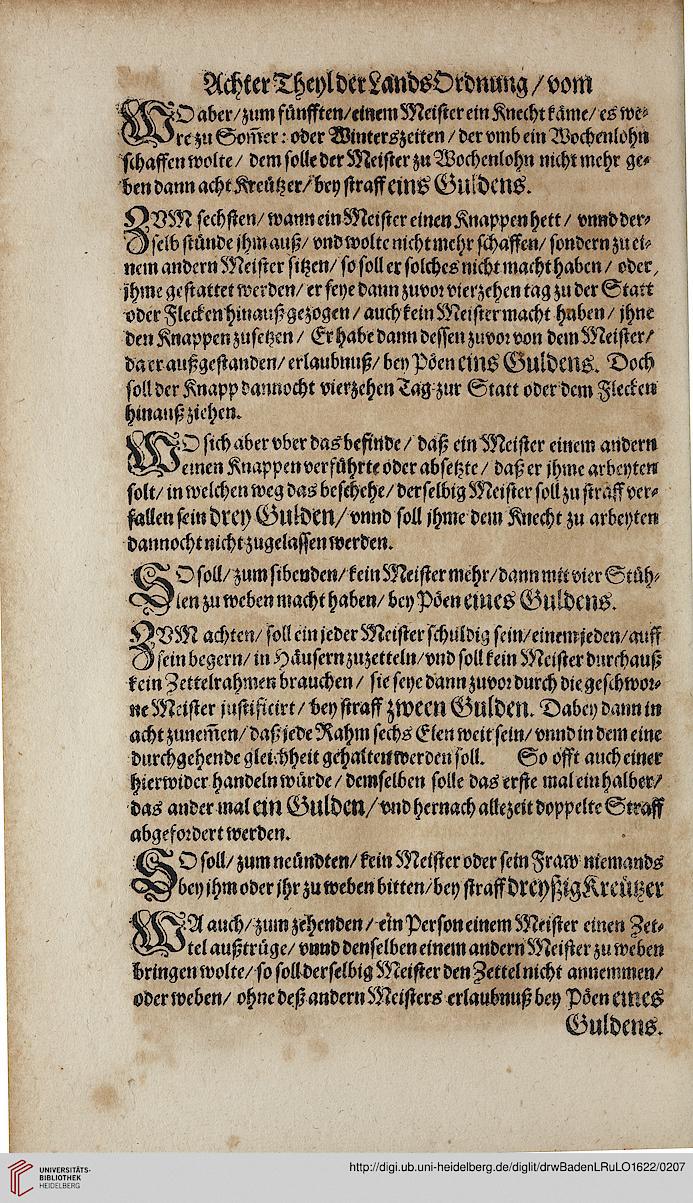 Achter Theyl der Lands Ordnung / vom
WO aber / zum fünfften / einem Meister ein Knecht käme / es we-
re zu Som̃er: oder Winterszeiten / der vmb ein Wochenlohn
schaffen wolte / dem solle der Meister zu Wochenlohn nicht mehr ge-
ben dann acht Kreützer / bey straff eins Guldens.
ZVM sechsten / wann ein Meister einen Knappen hett / vnnd der-
selb stünde ihm auß / vnd wolte nicht mehr schaffen / sondern zu ei-
nem andern Meister sitzen / so soll er solches nicht macht haben / oder /
jhme gestattet werden / er seye dann zuvor vierzehen tag zu der Statt
oder Flecken hinauß gezogen / auch kein Meister macht haben / jhne
den Knappen zusetzen / Er habe dann dessen zuvor von dem Meister /
da er außgestanden / erlaubnuß / bey Pöen eins Guldens. Doch
soll der Knapp dannocht vierzehen Tag zur Statt oder dem Flecken
hinauß ziehen.
WO sich aber vber das befinde / daß ein Meister einem andern
einen Knappen verführte oder absetzte / daß er jhme arbeyten
solt / in welchen weg das beschehe / derselbig Meister soll zu straff ver-
fallen sein drey Gulden / vnnd soll jhme dem Knecht zu arbeyten
dannocht nicht zugelassen werden.
SO soll / zum sibenden / kein Meister mehr / dann mit vier Stüh-
len zu weben macht haben / bey Pöen eines Guldens.
ZVM achten / soll ein jeder Meister schuldig sein / einem jeden / auff
sein begern / in Häusern zuzetteln / vnd soll kein Meister durchauß
kein Zettelrahmen brauchen / sie seye dann zuvor durch die geschwor-
ne Meister justificirt / bey straff zween Gulden. Dabey dann in
acht zunem̃en / daß jede Rahm sechs Elen weit sein / vnnd in dem eine
durchgehende gleichheit gehalten werden soll. So offt auch einer
hierwider handeln würde / demselben solle das erste mal ein halber /
das ander mal ein Gulden / vnd hernach allezeit doppelte Straff
abgefordert werden.
SO soll / zum neündten / kein Meister oder sein Fraw niemands
bey ihm oder jhr zu weben bitten / bey straff dreyßig Kreützer
WA auch / zum zehenden / ein Person einem Meister einen Zet-
tel außtrüge / vnnd denselben einem andern Meister zu weben
bringen wolte / so soll derselbig Meister den Zettel nicht annemmen /
oder weben / ohne deß andern Meisters erlaubnuß bey Pöen eines
Guldens.
UNIVERSITÄTS-
BIBLIOTHEK
HEIDELBERG
http://digi.ub.uni-heidelberg.de/diglit/drwBadenLRuLO1622/0207